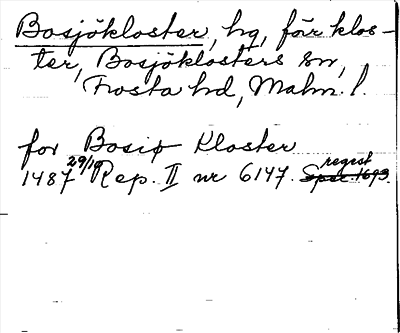 Bosjökloster, hg, förr klos-
ter, Bosjöklosters sn,
Frosta hd, Malm. l.
for Bosiø Kloster
1487 29/10 Rep. II nr 6147. regest Spec. 1693.